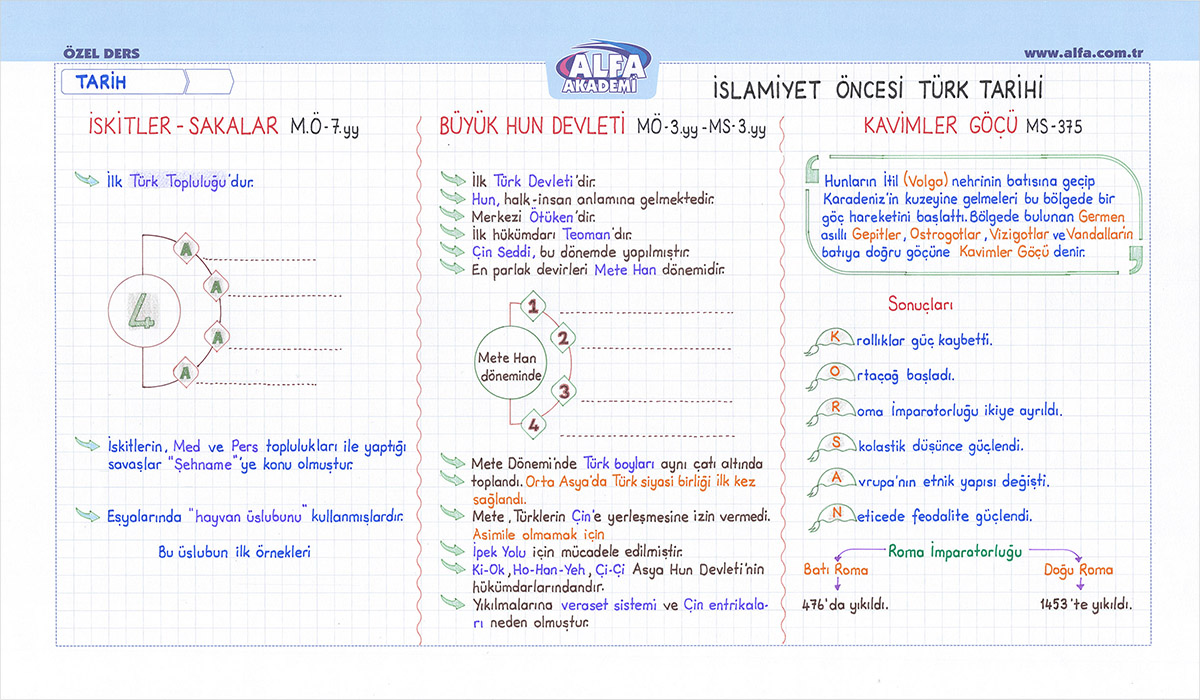 ÖZEL DERS
www.alfa.com.tr
ALFA
AKADEMİ
TARİH
İSLAMİYET ÖNCESİ TÜRK TARİHİ
İSKİTLER - SAKALAR M.Ö-7.yy
İlk Türk Topluluğu'dur.
4
A
A
A
A
İskitlerin, Med ve Pers toplulukları ile yaptığı
savaşlar "Şehname"'ye konu olmuştur.
Eşyalarında "hayvan üslubunu" kullanmışlardır.
Bu üslubun ilk örnekleri
BÜYÜK HUN DEVLETİ MÖ-3.yy-MS-3.yy
İlk Türk Devleti'dir.
Hun, halk-insan anlamına gelmektedir.
Merkezi Ötüken'dir.
İlk hükümdarı Teoman'dır.
Çin Seddi, bu dönemde yapılmıştır.
En parlak devirleri Mete Han dönemidir.
Mete Han
döneminde
1
2
3
4
Mete Dönemi'nde Türk boyları aynı çatı altında
toplandı. Orta Asya'da Türk siyasi birliği ilk kez
sağlandı.
Mete, Türklerin Çin'e yerleşmesine izin vermedi.
Asimile olmamak için
İpek Yolu için mücadele edilmiştir.
Ki-Ok, Ho-Han-Yeh, Çi-Çi Asya Hun Devleti'nin
hükümdarlarındandır.
Yıkılmalarına veraset sistemi ve Çin entrikala-
rı neden olmuştur.
KAVİMLER GÖÇÜ MS-375
Hunların İtil (Volga) nehrinin batısına geçip
Karadeniz'in kuzeyine gelmeleri bu bölgede bir
göç hareketini başlattı. Bölgede bulunan Germen
asıllı Gepitler, Ostrogotlar, Vizigotlar ve Vandalların
batıya doğru göçüne Kavimler Göçü denir.
Sonuçları
Krallıklar güç kaybetti.
Ortaçağ başladı.
Roma İmparatorluğu ikiye ayrıldı.
Skolastik düşünce güçlendi.
Avrupa'nın etnik yapısı değişti.
Neticede feodalite güçlendi.
Roma İmparatorluğu
Batı Roma
Doğu Roma
476'da yıkıldı.
1453'te yıkıldı.